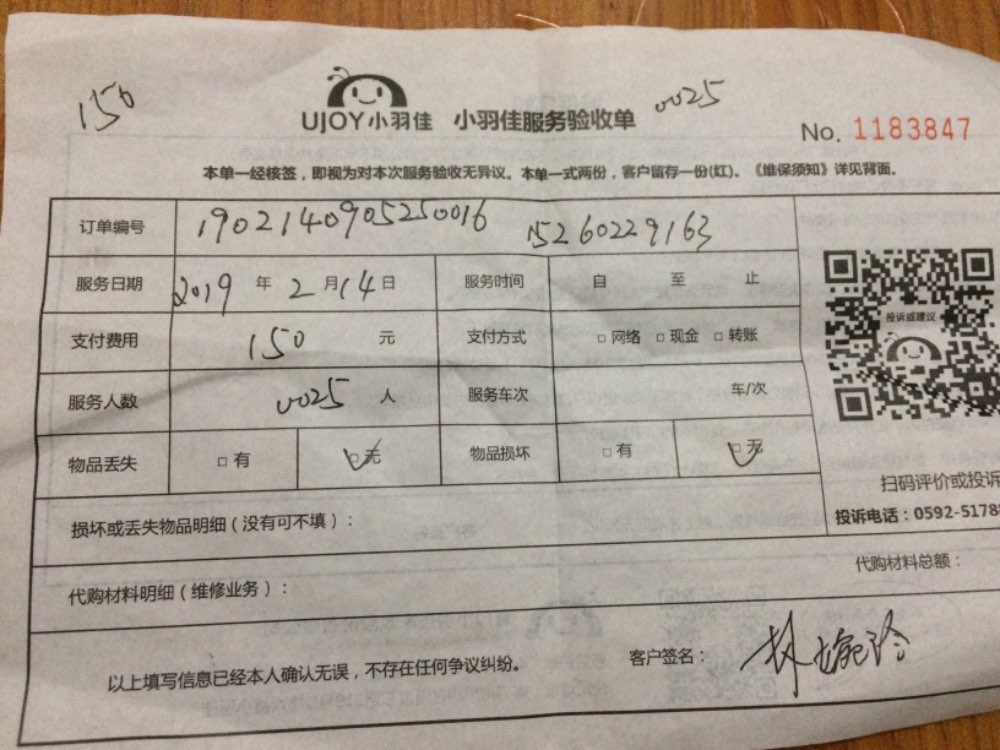 150
UJOY小羽佳 小羽佳服务验收单 0025
No. 1183847
本单一经核签，即视为对本次服务验收无异议。本单一式两份，客户留存一份(红)。《维保须知》详见背面。
订单编号 1902140905250016 15260229163
服务日期 2019 年 2 月 14 日 服务时间 自 至 止
支付费用 150 元 支付方式 □ 网络 □ 现金 □ 转账
服务人数 0025 人 服务车次 车/次
物品丢失 □ 有 □ 无 物品损坏 □ 有 □ 无
投诉或建议
扫码评价或投诉
投诉电话：0592-5178
损坏或丢失物品明细（没有可不填）：
代购材料明细（维修业务）： 代购材料总额：
以上填写信息已经本人确认无误，不存在任何争议纠纷。 客户签名： 林婉玲